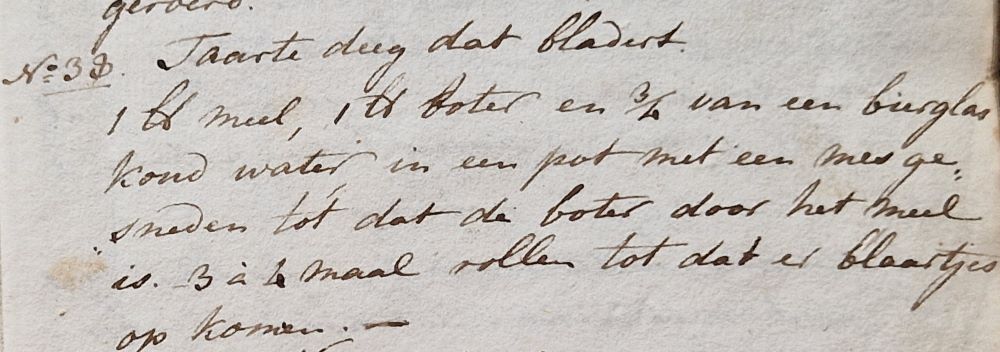 geroerd.
No. 38. Taarte deeg dat bladert.
1 ℔ meel, 1 ℔ boter en 3/4 van een bierglas
koud water, in een pot met een mes ge„
„sneden tot dat de boter door het meel
is. 3 à 4 maal rollen tot dat er blaartjes
op komen. —